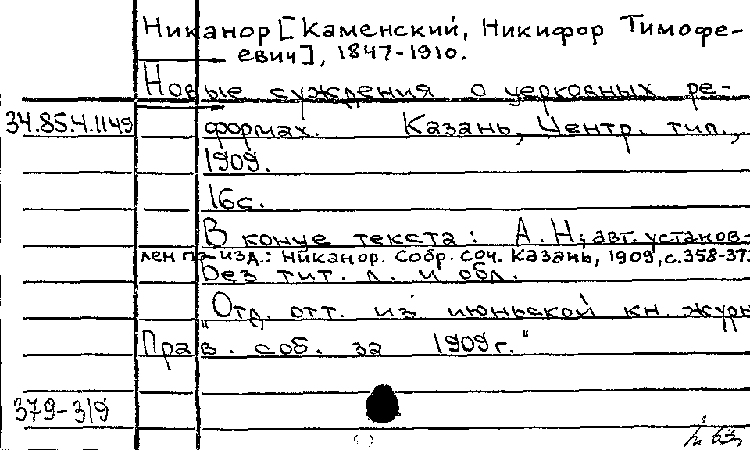 Никанор [Каменский, Никифор Тимофе-
евич], 1847-1910.
Новые суждения о церковных ре-
34.85.4.1149 формах. Казань, Центр. тип.,
1909.
16с.
В конце текста: А.Н; авт. установ-
лен по изд.: Никанор. Собр. соч. Казань, 1909, с.358-373.
Без тит. л. и обл.
"Отд. отт. из июньской кн. журн
Прав. соб. за 1909г."
379-319